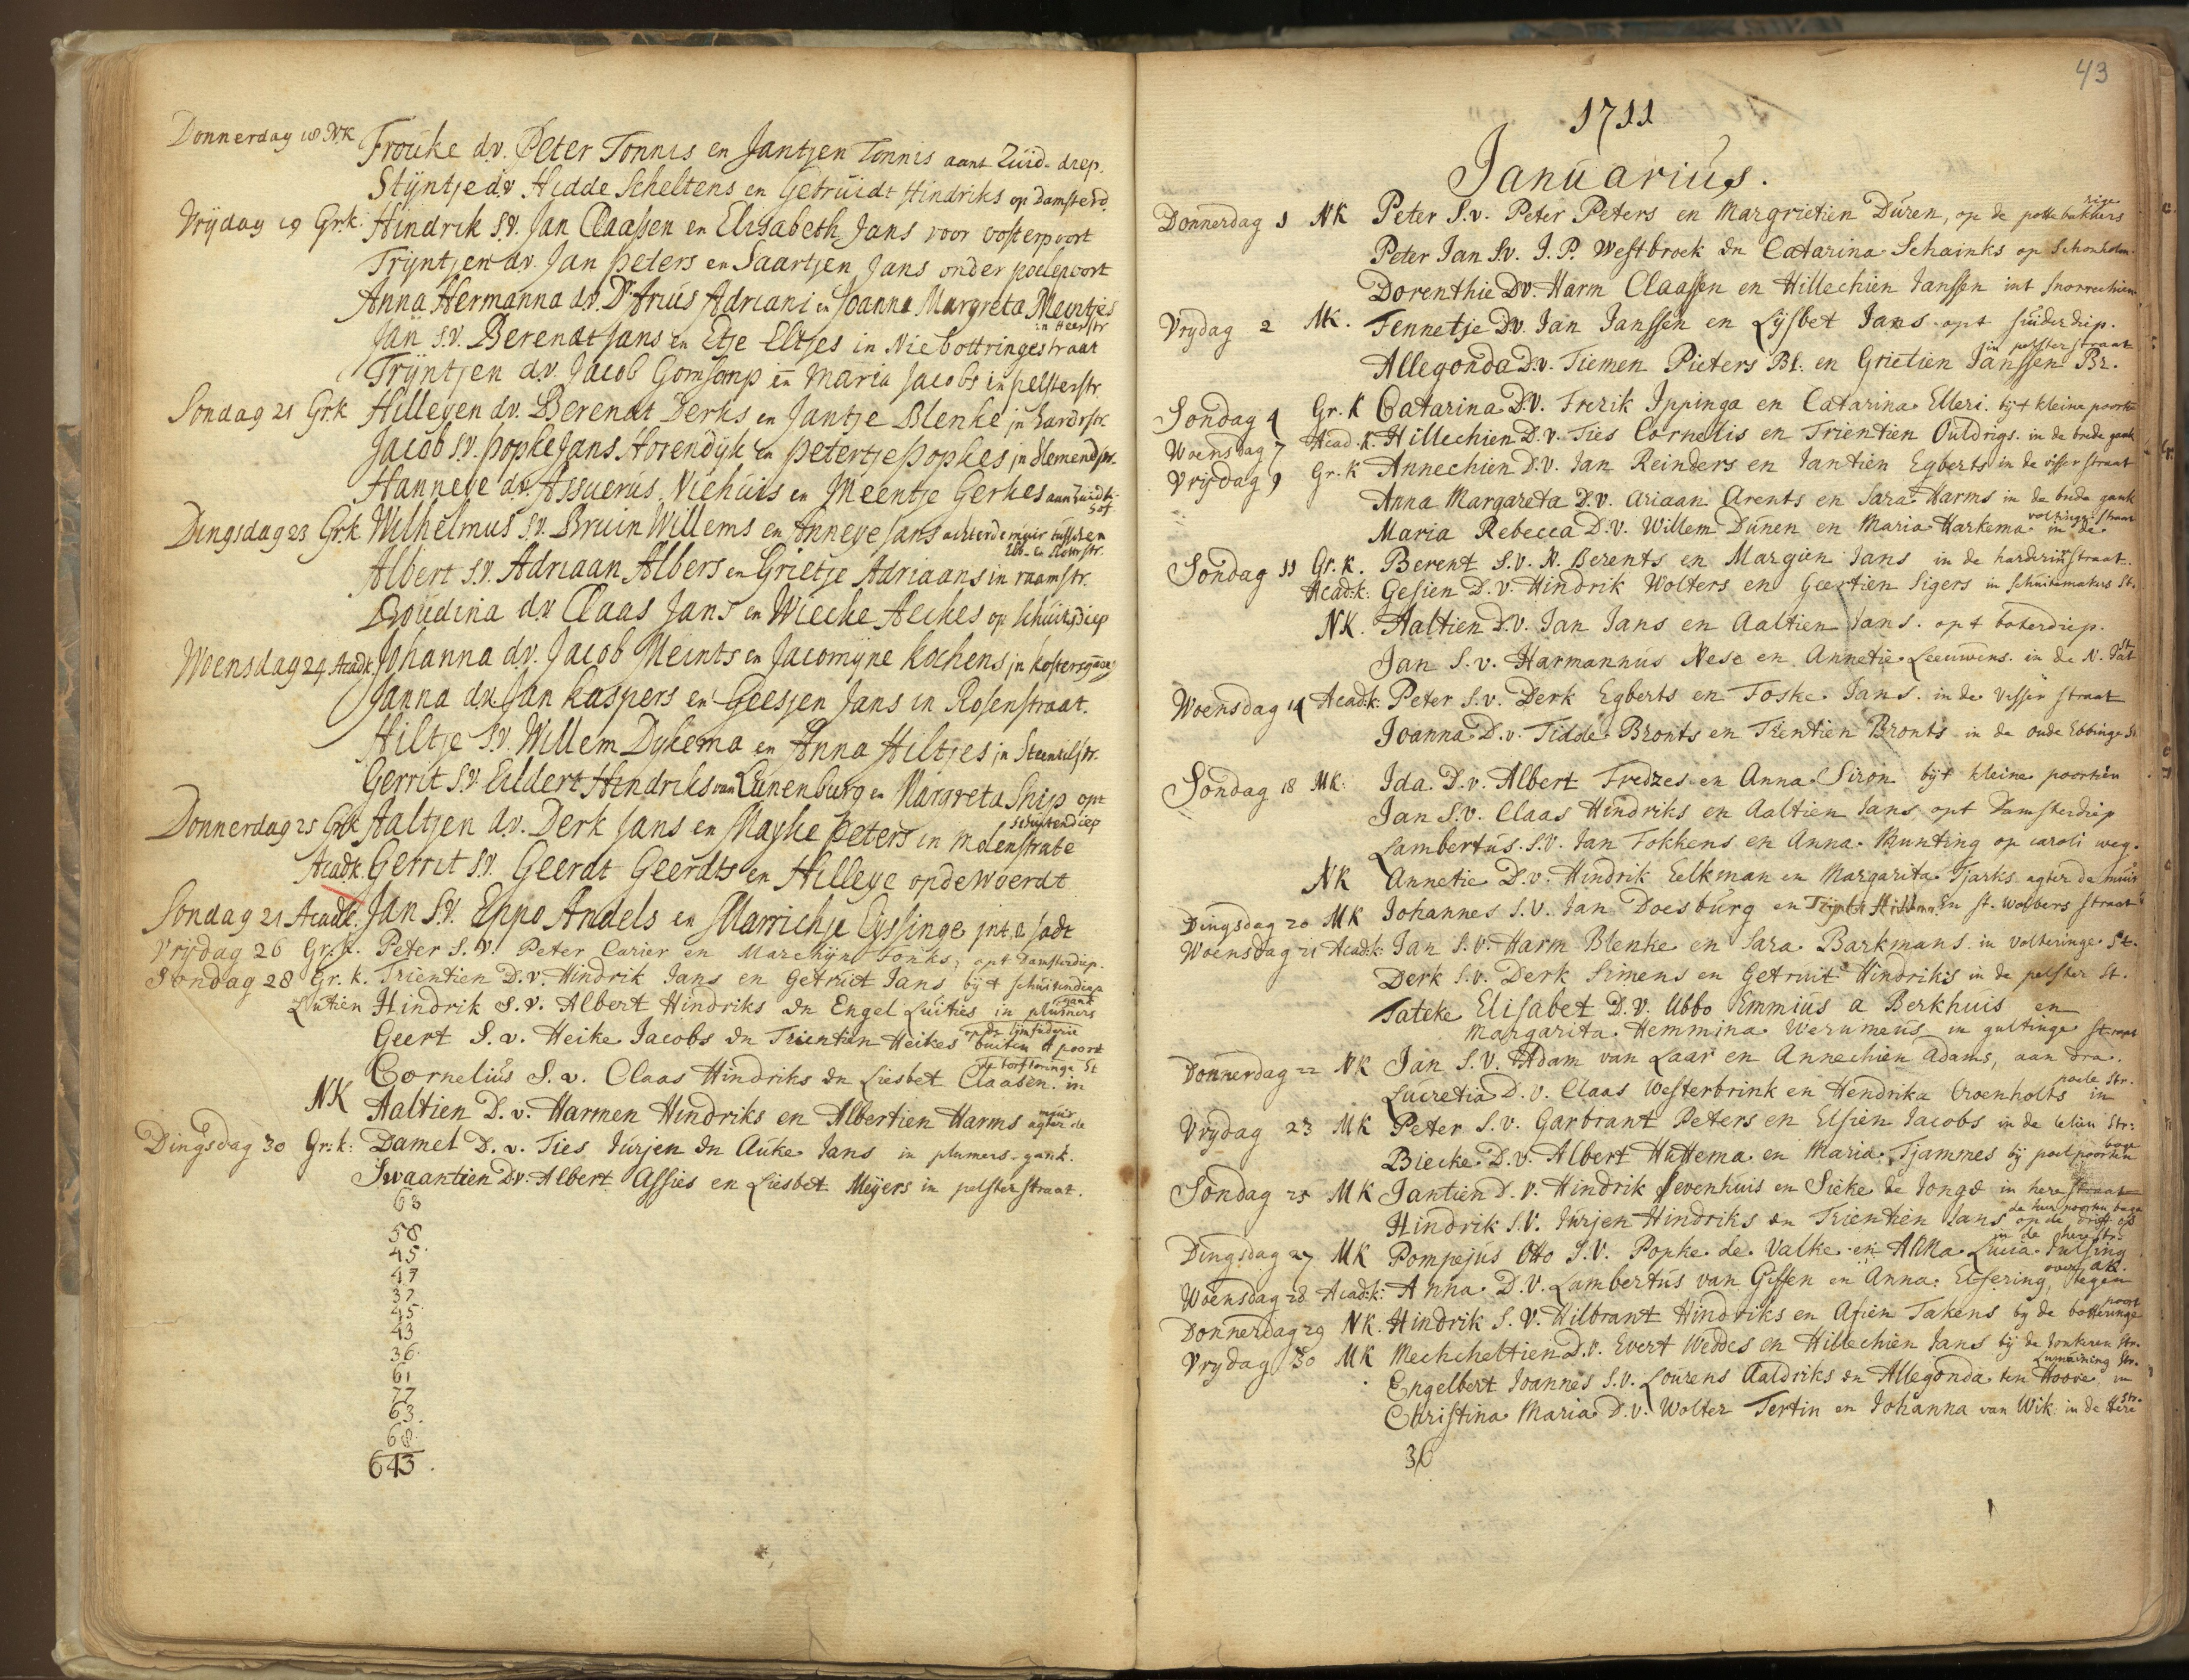 Donnerdag 18 NK Frouke d.v. Peter Tonnis en Jantjen Tonnis aant Zuid-diep.
Stijntje d.v. Hidde Scheltens en Getruidt Hindriks op Damsterd.
Vrijdag 19 Gr.k. Hindrik S.V. Jan Claassen en Elisabeth Jans voor oosterpoort
Trijntjen d.v. Jan Peters en Saartjen Jans onder poelepoort
Anna Hermanna d.v. Ds. Arius Adriani en Joanna Margreta Meintjes
in Heerstr
Jan S.V. Berendt Jans en Etje Eltjes in Niebottringestraat
Trijntjen d.v. Jacob Gomsomp en Maria Jacobs in pelsterstr.
Sondag 21 Gr.k Hilleyen d.v. Berendt Derks en Jantje Blenke in hardrstr
Jacob S.V. Popke Jans Horendijk en Petertje Popkes in
Hanneye d.v. Assuerus Niehuis en Meentje Gerkes aan Zuidk:
hof
Dingsdag 23 Gr.k Wilhelmus S.V. Bruin Willems en Anneye Jans achter de muir tusschen
Ebb- en Botterstr.
Albert S.V. Adriaan Albers en Grietje Adriaans in raamstr.
Boudina d.v. Claas Jans en Wiecke Aeikes op Schuitsdiep
Woensdag 24 Acad.k. Johanna d.v. Jacob Meints en Jacomijne Kochens in kostersgang
Janna d.v. Jan Kaspers en Geesjen Jans in Rosenstraat.
Hiltje S.V. Willem Dykema en Anna Hiltjes in Steentilstr.
Gerrit S.V. Eildert Hindriks van Lunenburg en Margreta Ship opt
Schuitendiep
Donnerdag 25 Gr.k Aaltjen d.v. Derk Jans en Mayke Peters in Molenstrate
Acad.k. Gerrit S.V. Geerdt Geerdts en Hilleye op de Woerdt
Sondag 21 Acad.k. Jan S.V. Eppo Andels en Marrichje Eyssinge int e Jadt
Vrijdag 26 Gr.k. Peter S.V. Peter Carier en Marchijn Fonks, opt Damsterdiep.
Sondag 28 Gr.k. Trientien D.v. Hindrik Jans en Getruit Jans bijt schuitendiep
Luitien Hindrik S.v. Albert Hindriks en Engel Luities in plumers
gank
Geert S.v. Heike Jacobs en Trientien Heikes buiten A poort
op de lijmsuderie
Cornelius S.v. Claas Hindriks en Liesbet Claasen. in
de bottringe St
NK Aaltien D.v. Harmen Hindriks en Albertien Harms agter de
muir
Dingsdag 30 Gr:k: Damel D.v. Ties Jurjen en Auke Jans in plumers-gank.
Swaantien D.v. Albert Assies en Liesbet Meijers in pelsterstraat.
63
58
45
47
37
45
43
36
61
77
63
68
643.
43
1711
Januarius.
Donnerdag 1 NK Peter S.v. Peter Peters en Margrietien Duren, op de pottebakkers
rige
Peter Jan S.v. J.P. Westbroek en Catarina Schainks op Schonholm.
Dorenthie D.v. Harm Claassen en Hillechien Janssen int Snorrechien
Vrijdag 2 MK. Tennetje D.v. Jan Janssen en Lijsbet Jans opt suiderdiep.
Allegonda D.v. Tiemen Pieters Bl. en Grietien Janssen Br.
in pelster straat
Sondag 4 Gr.K Catarina D.V. Frerik Ippinga en Catarina Elleri. bijt kleine poortie
Woensdag 7 Acad.k. Hillechien D.v. Ties Cornelis en Trientien Ouldrigs. in de brede gank
Vrijdag 9 Gr.k Annechien D.V. Jan Reinders en Jantien Egberts in de visser straat
Anna Margareta D.V. Ariaan Arents en Sara Harms in de brede gank
Maria Rebecca D.V. Willem Dunen en Maria Harkema in de
voltringe straat
Sondag 11 Gr.k. Berent S.V. N. Berents en Margien Jans in de harderinstraat.
Acad:k: Gesien D.V. Hindrik Wolters en Geertien Sigers in schuitemakers St.
NK. Aaltien D.V. Jan Jans en Aaltien Jans. opt boterdiep.
Jan S.v. Harmannus Nese en Annetie Leeuwens. in de N. Jat
St
Woensdag 14 Acad.k. Peter S.v. Derk Egberts en Toske Jans. in de Visser straat
Joanna D.v. Tidde Bronts en Trientien Bronts in de oude Ebbinge St
Sondag 18 MK: Ida D.v. Albert Fredzes en Anna Siron bijt kleine poortien
Jan S.v. Claas Hindriks en Aaltien Jans opt Damsterdiep
Lambertus S.V. Jan Fokkens en Anna Bunting op caroli weg.
NK Annetie D.v. Hindrik Eelkman en Margarita Tjarks agter de muir
Dingsdag 20 MK Johannes S.V. Jan Doesburg en in St. Wolbers straat
Woensdag 21 Acad:k: Jan S.V. Harm Blenke en Sara Barkmans in volteringe St.
Derk S.v. Derk Simens en Getruit Hindriks in de pelster St.
Tateke Elisabet D.V. Ubbo Emmius a Berkhuis en
Margarita Hemmina Werumeus in gultinge straat
Donnerdag 22 NK Jan S.V. Adam van Laar en Annechien Adams, aan dra.
Lucretia D.v. Claas Westerbrink en Hendrika Croenholts in
poele str.
Vrydag 23 MK Peter S.v. Garbrant Peters en Elsien Jacobs in de lelien Str:
Biecke D.v. Albert Huttema en Maria Tjammes bij poelpoorten
boge
Sondag 25 MK Jantien D.V. Hindrik Sevenhuis en Sieke de Jonge in here straat
Hindrik S.V. Jurjen Hindriks en Trientien Jans op de drift
Dingsdag 27 MK Pompejus Otto S.V. Popke de Valke en Anna Lucia Tulsing
in de herestr.
Woensdag 28 Acad:k: Anna D.V. Lambertus van Gissen en Anna Elsering, tegen
over ak.
Donnerdag 29 NK. Hindrik S.V. Hilbrant Hindriks en Afien Takens by de botteringe
poort
Vrydag 30 MK Mechcheltien D.v. Evert Weddes en Hillechien Jans bij de donkeren Str.
Engelbert Joannes S.v. Lourens Aaldriks en Allegonda ten Hoove in
Christina Maria D.v. Wolter Tertin en Johanna van Wik in de Here
Str.
36